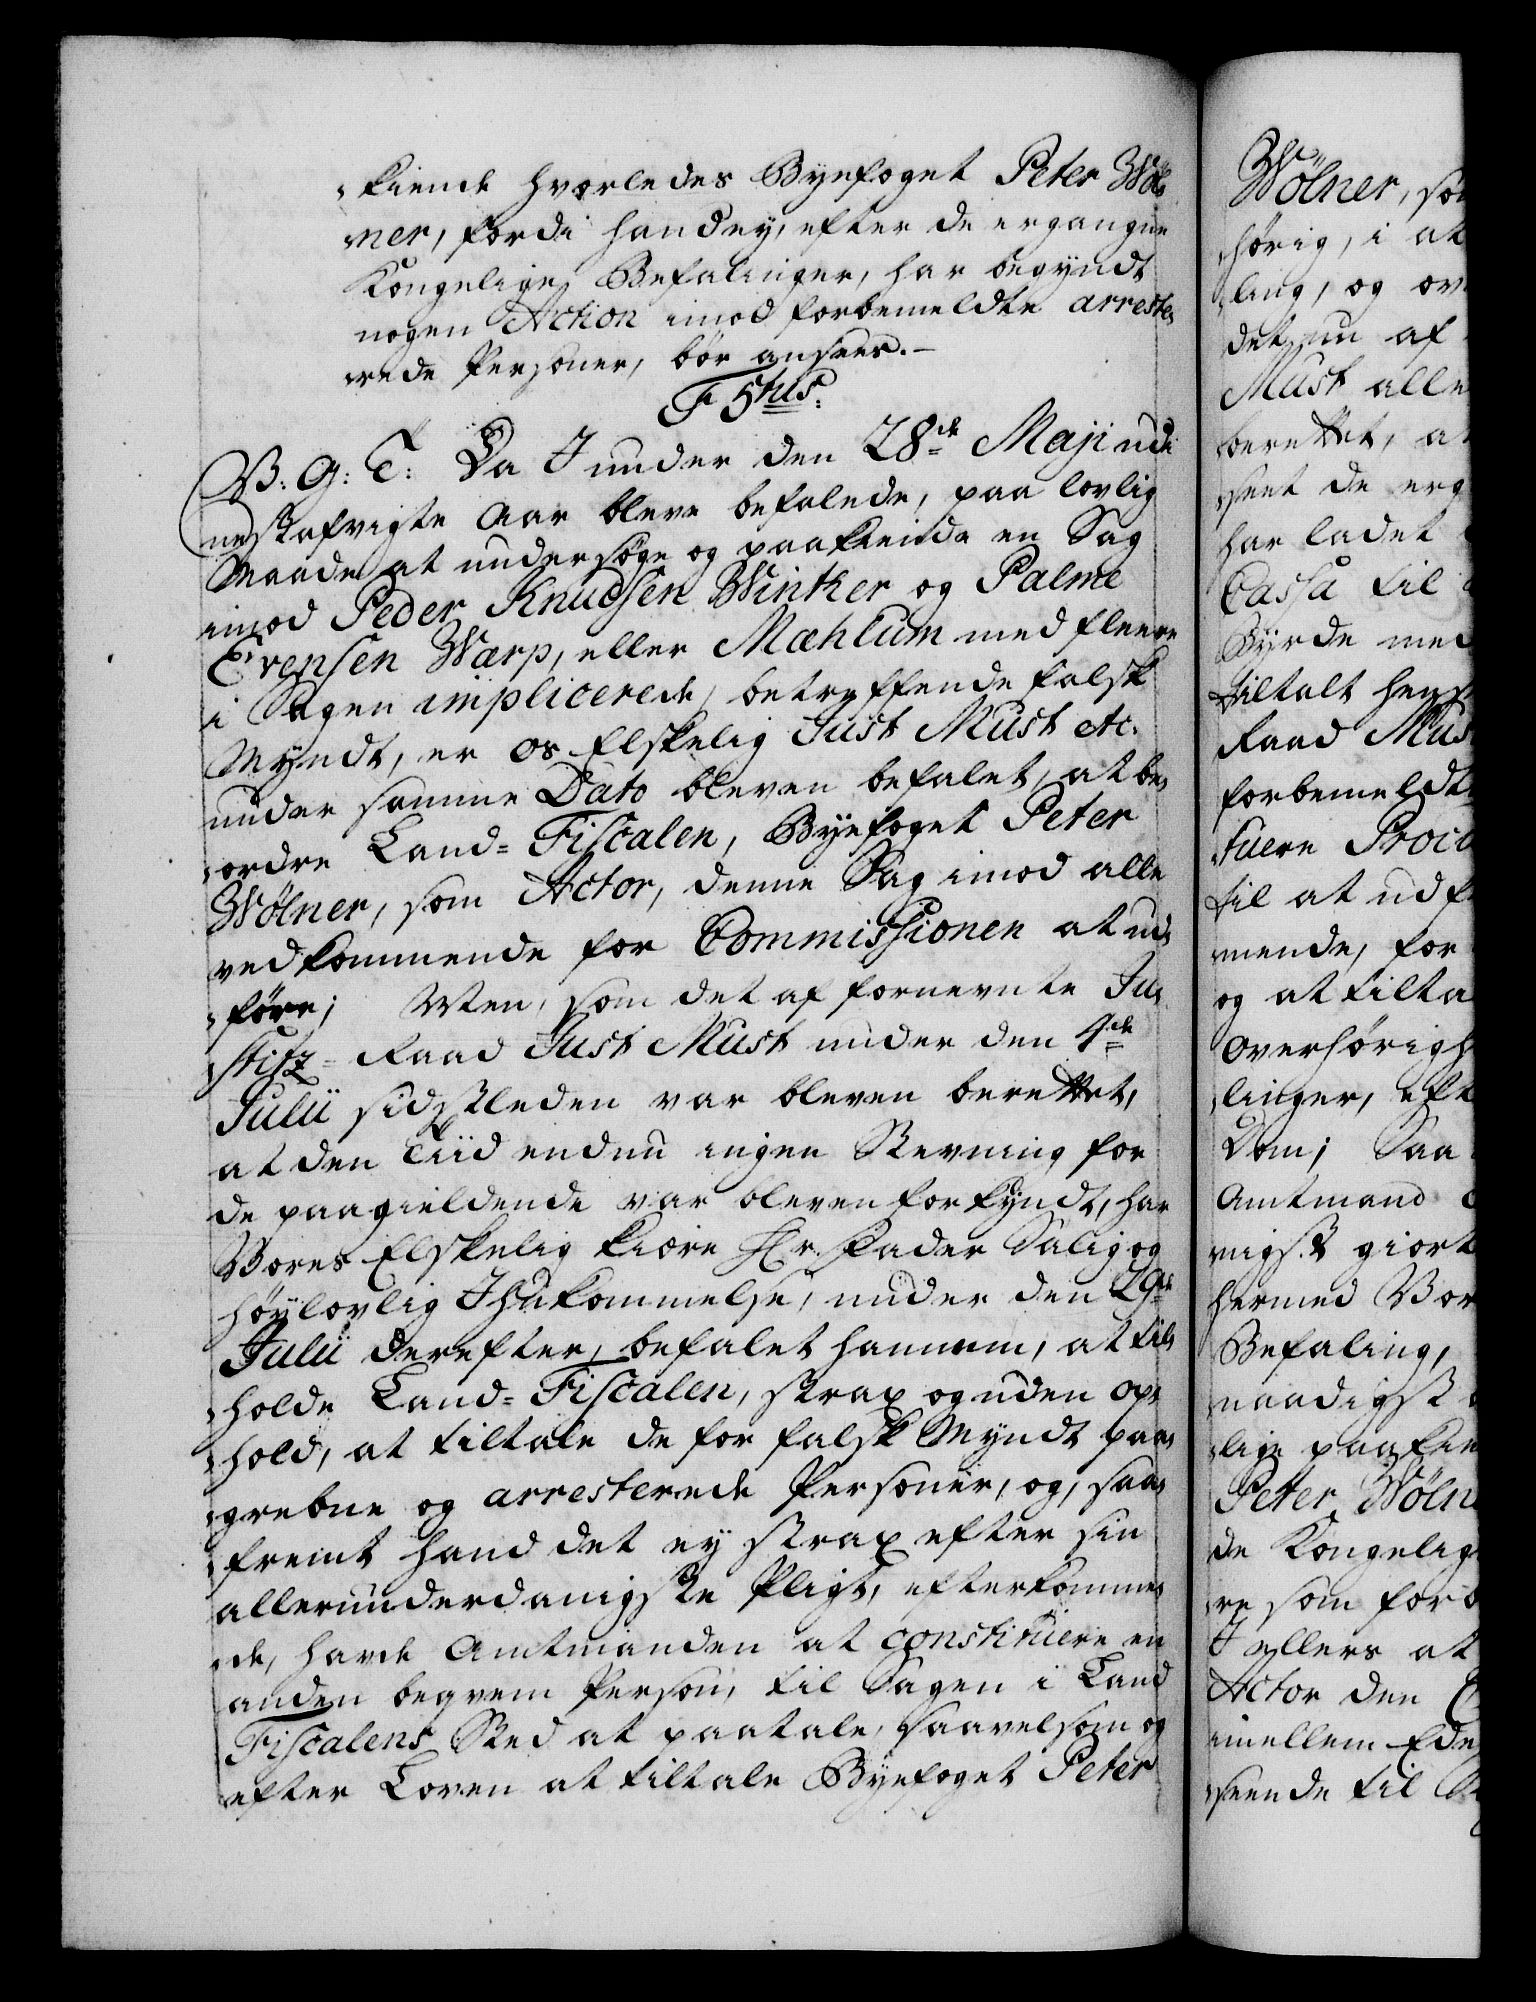 kiende hvorledes Byefoget Peter Wöl-
ner, fordi hand ey, efter de ergangne
Kongelige Befalinger, har begyndt
nogen Action imod forbemeldte arreste-
rede Personer, bör ansees.—
F 5tus.
V. G: T: Da I under den 28de Maji udi
nestafvigte Aar bleve befalede, paa lovlig
Maade at undersöge og paakiende en Sag
imod Peder Knudsen Winther og Palme
Evensen Wærp, eller Mæhlum med fleere
i Sagen implicerede, betreffende falsk
Myndt, er Os Elskelig Just Must etc.
under samme Dato bleven befalet, at be-
ordre Land-Fiscalen, Byefoget Peter
Wölner, som Actor, denne Sag imod alle
vedkommende for Commissionen at ud-
före; Men, som det af fornevnte Ju-
stitz-Raad Just Must under den 1de
Julii sidstleden var bleven berettet,
at den Tiid endnu ingen Stevning for
de paagieldende var bleven forkyndt, har
Vores Elskelig kiære Hr. Fader Salig og
höylovlig Ihukommelse, under den 29de
Julii derefter, befalet hannem, at til-
holde Land-Fiscalen, strax og uden op-
hold, at tiltale de for falsk Myndt paa-
grebne og arresterede Personer, og, saa-
fremt hand det ey strax efter sin
allerunderdanigste Pligt, efterkomme-
de, havde Amtmanden at constituere en
anden beqvem Person, til Sagen i Land
Fiscalens Sted at paatale, saavelsom og
efter Loven at tiltale Byefoget Peter
Wölner, som
hörig, i at
ling, og ov
det nu af
Must alle
berettet, at
seet de erg
har ladet
Cassa til
Byrde med
tiltalt hen
Raad Must
forbemeldt
tuere Proc
til at udf
mende, for
og at tilta
Overhörigh
linger, eft
Dom; Saa
Amtmand
nigst giort
hermed Vor
Befaling,
naadigst
lige paakie
Peter Wöln
de Kongelig
re som forb
I ellers at
Actor den
imellem Ede
seende til